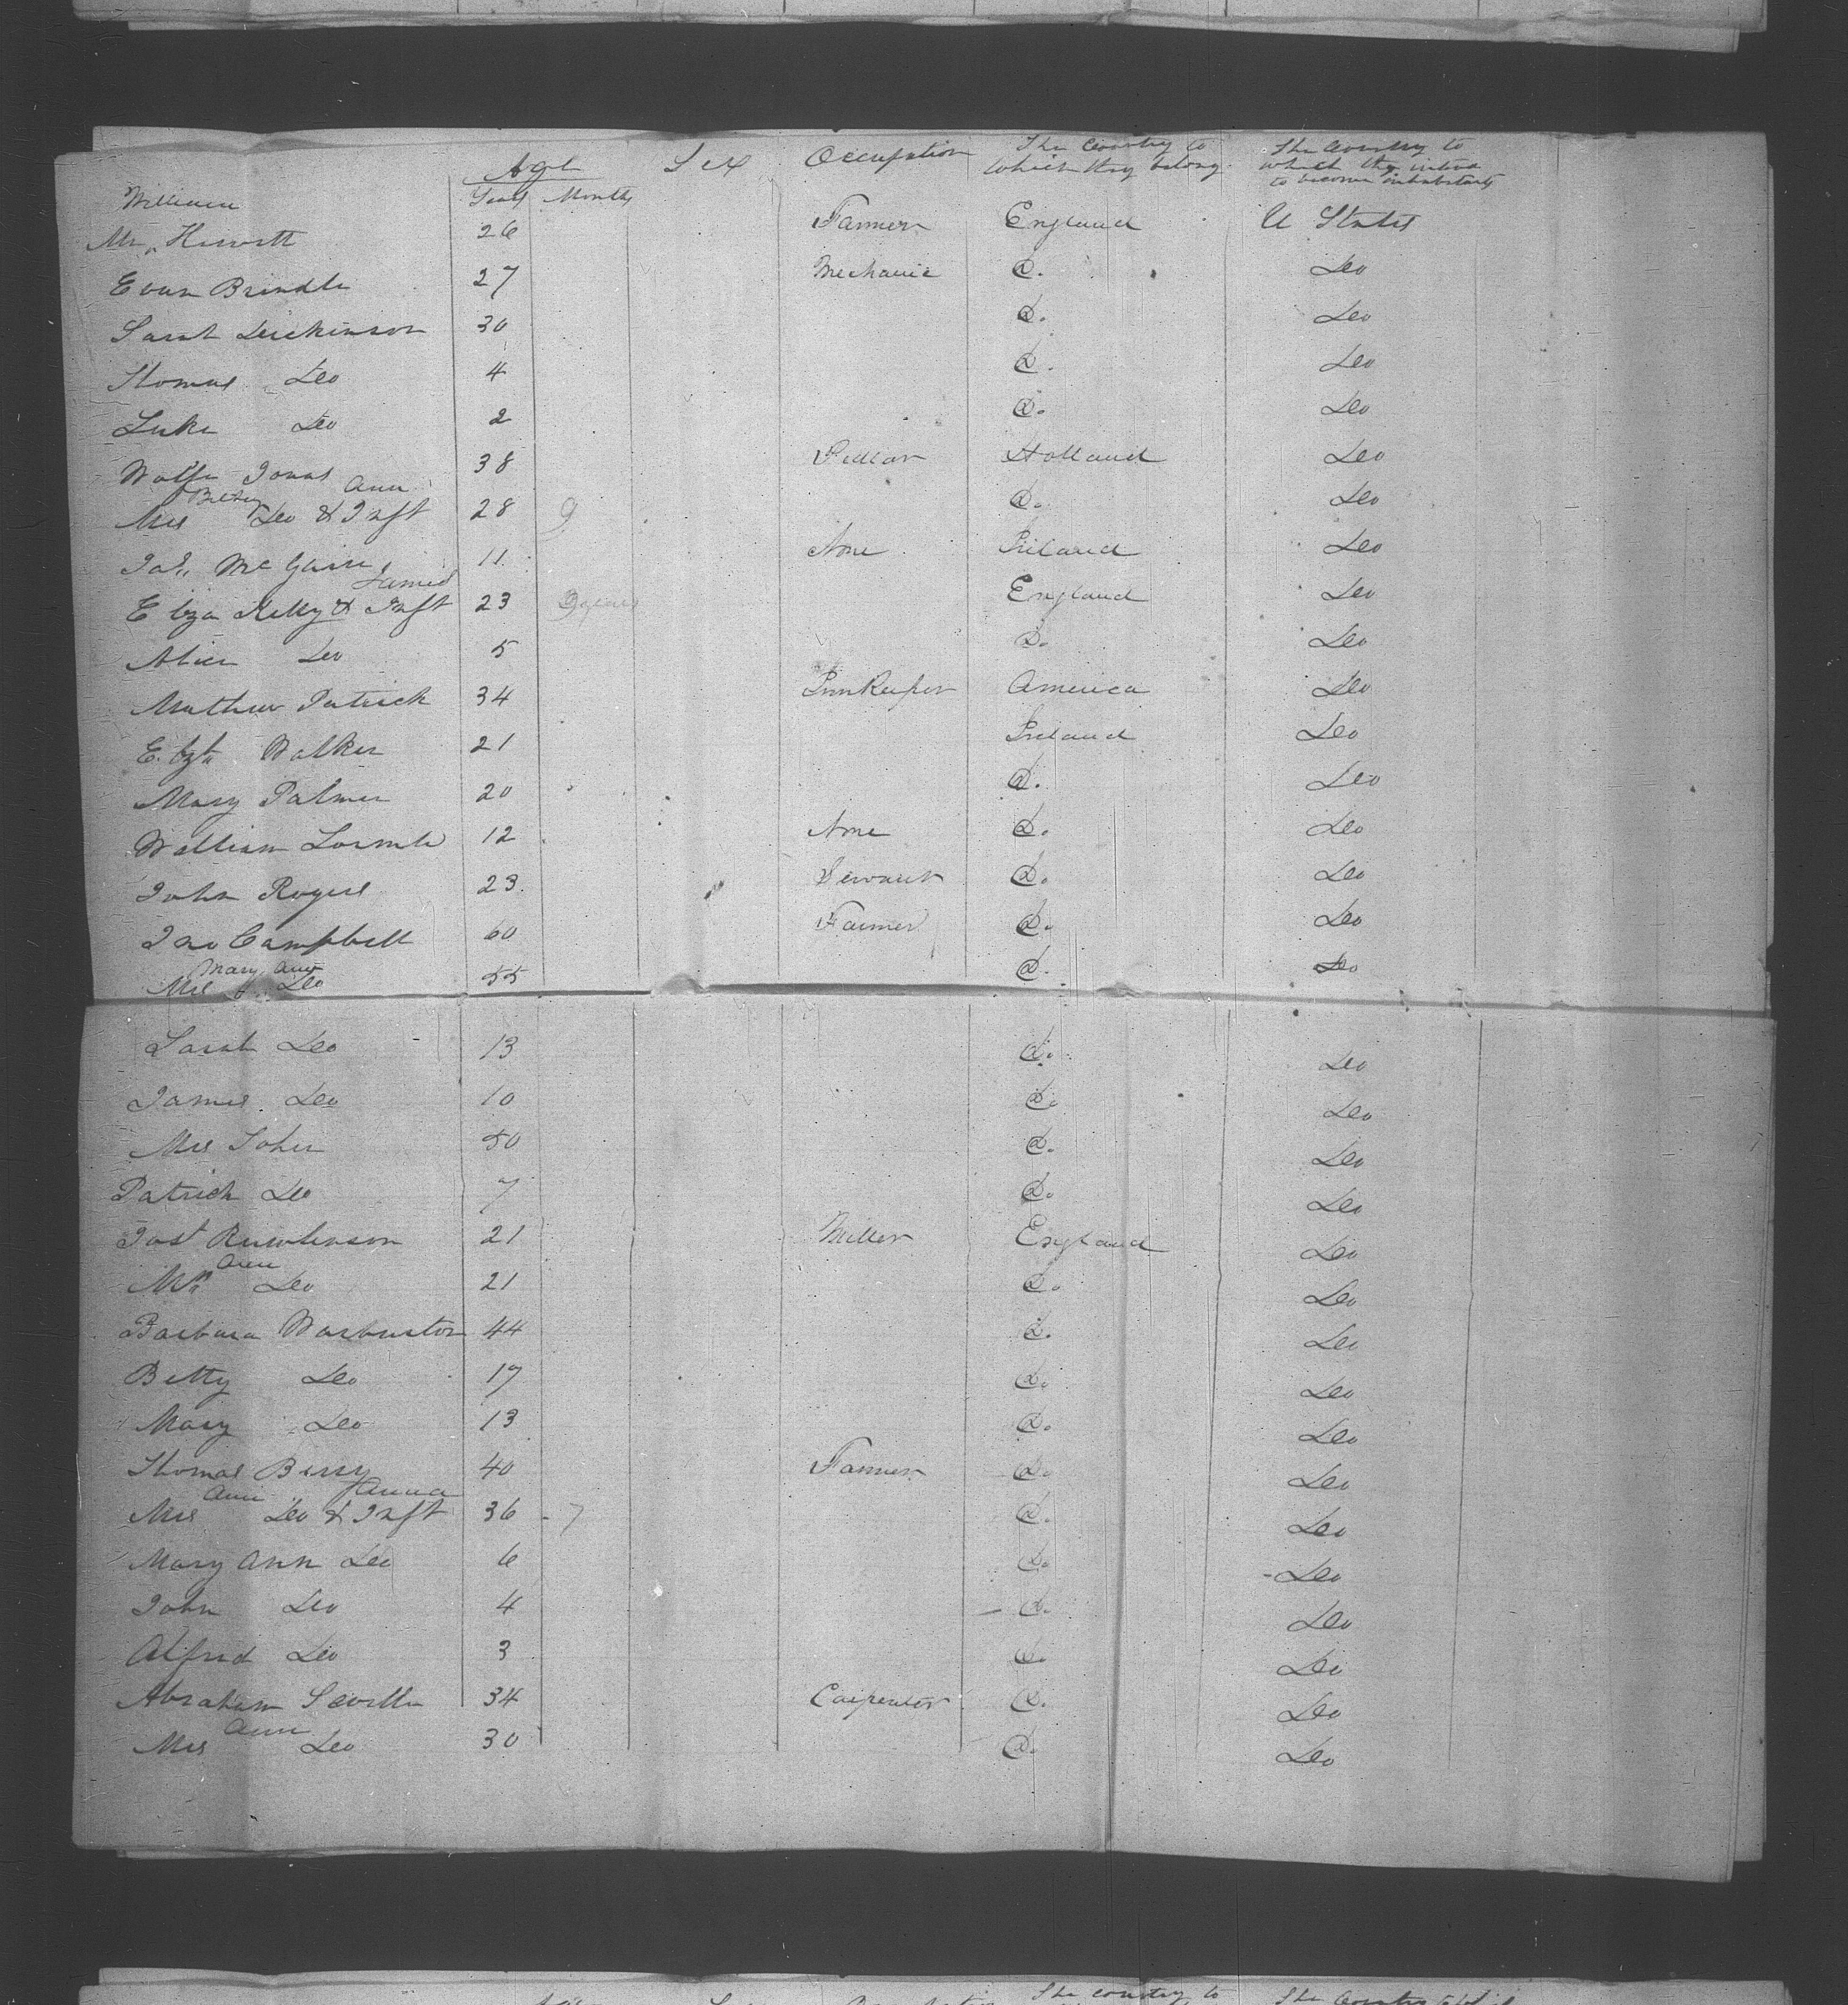 Age Sex Occupation The Country to which they belong The Country to which they intend to become inhabitants
Years Months
William
Mr. Hewitt 26 Farmer England U States
Evan Brindle 27 Mechanic D. Do
Sarah Dickinson 30 D. Do
Thomas Do 4 D. Do
Luke Do 2 D. Do
Wolfe Jonas 38 Holland Do
Betsey Ann
Mrs Do & Inft 28 9 D. Do
Jas. McGuire 11 None Ireland Do
James
Eliza Kelly & Inft 23 England Do
Alice Do 5 D. Do
Mathew Patrick 34 Innkeeper America Do
E. bzth Walker 21 Ireland Do
Mary Palmer 20 D. Do
William 12 None D. Do
John Rogers 23 Servant D. Do
Jno Campbell 60 Farmer D. Do
Mary Ann
Mrs Do 55 D. Do
Sarah Do 13 D. Do
James Do 10 D. Do
Mrs 50 D. Do
Patrick Do 7 D. Do
Rawlinson 21 Miller England Do
Ann
Mrs Do 21 D. Do
Barbara Warburton 44 D. Do
Betty Do 17 D. Do
Mary Do 13 D. Do
Thomas Berry 40 Farmer D. Do
Ann Anna
Mrs Do & Inft 36 - 7 D. Do
Mary Ann Do 6 D. Do
John Do 4 D. Do
Alfred Do 3 D. Do
Abraham Saville 34 Carpenter D. Do
Ann
Mrs Do 30 D. Do
The country to The Country